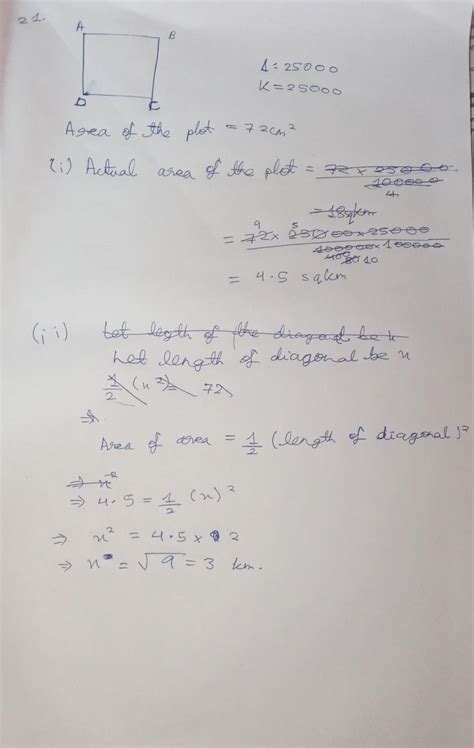 21.
A B
D C
1:25000
K = 25000
Area of the plot = 72cm²
(i) Actual area of the plot = 72 x 25000 / 100000
4
= 18sqkm
= 72 x 25000 x 25000 / 100000 x 100000
9 5
400 10
= 4.5 sqkm
(ii) Let legth of the diagonal be x
Let length of diagonal be x
1/2 (x²) = 72
⇒
Area of area = 1/2 (length of diagonal)²
⇒ x²
⇒ 4.5 = 1/2 (x)²
⇒ x² = 4.5 x 2
⇒ x = √9 = 3 km.